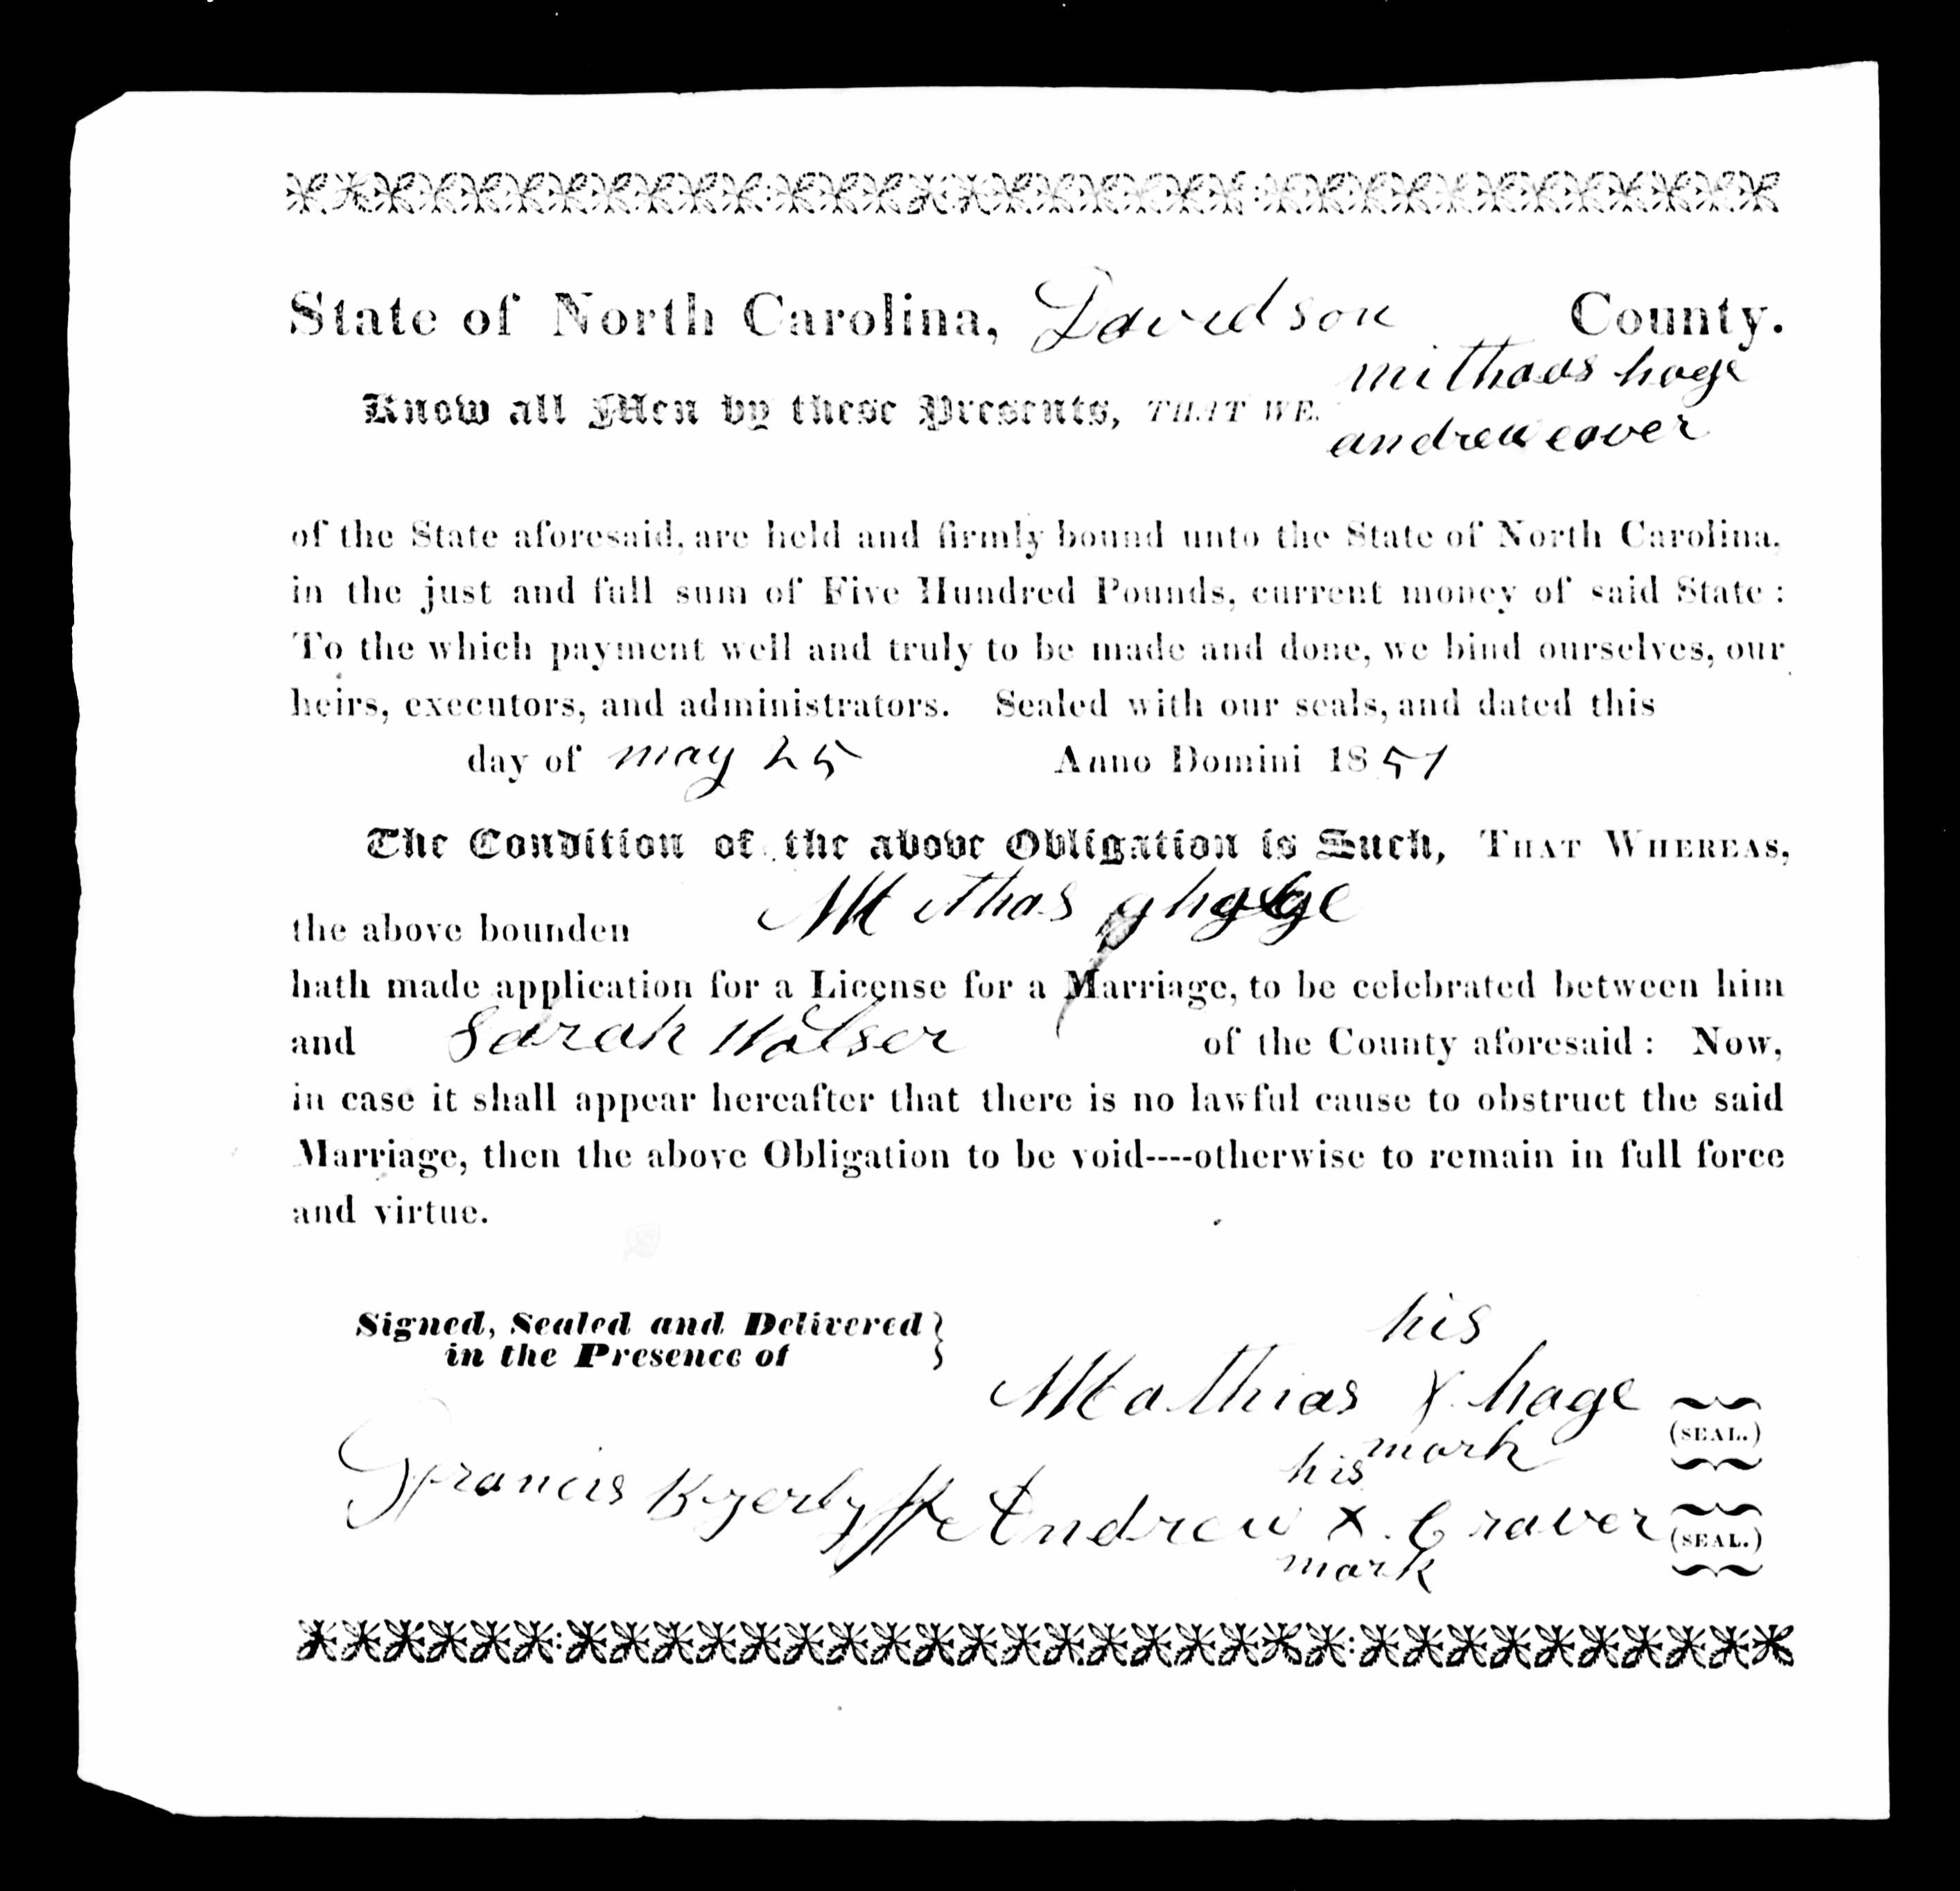 State of North Carolina, Davidson County.
mithaas hage
Know all Men by these Presents, THAT WE.
andrew cover
of the State aforesaid, are held and firmly bound unto the State of North Carolina,
in the just and full sum of Five Hundred Pounds, current money of said State :
To the which payment well and truly to be made and done, we bind ourselves, our
heirs, executors, and administrators. Sealed with our seals, and dated this
day of may 25 Anno Domini 1851
The Condition of the above Obligation is Such, THAT WHEREAS,
the above bounden Mithas
hath made application for a License for a Marriage, to be celebrated between him
and Sarah Wolser of the County aforesaid : Now,
in case it shall appear hereafter that there is no lawful cause to obstruct the said
Marriage, then the above Obligation to be void----otherwise to remain in full force
and virtue.
Signed, Sealed and Delivered }
in the Presence of
his
Mathias X hage (SEAL.)
mark
his
Francis Kyerby Andrew X. Craver (SEAL.)
mark